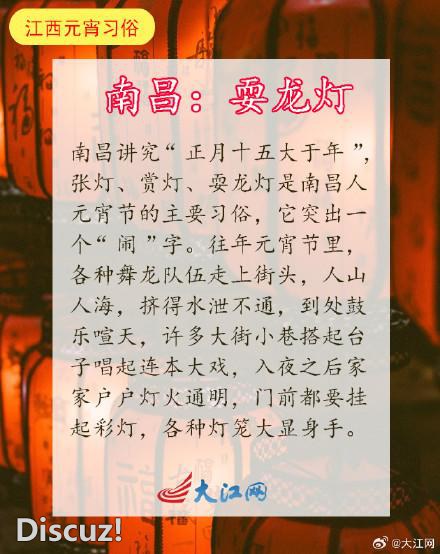 江西元宵习俗
南昌：耍龙灯
南昌讲究“正月十五大于年”，
张灯、赏灯、耍龙灯是南昌人
元宵节的主要习俗，它突出一
个“闹”字。往年元宵节里，
各种舞龙队伍走上街头，人山
人海，挤得水泄不通，到处鼓
乐喧天，许多大街小巷搭起台
子唱起连本大戏，入夜之后家
家户户灯火通明，门前都要挂
起彩灯，各种灯笼大显身手。
大江网
Discuz!
@大江网